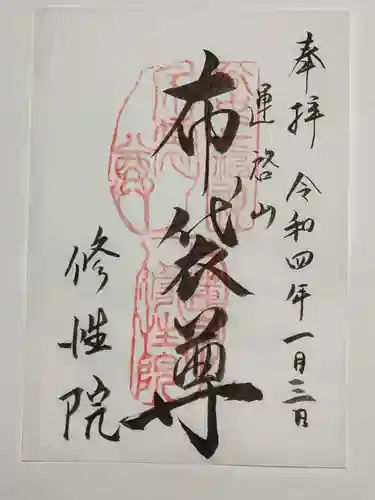 奉拝 令和四年一月三日
運啓山
布袋尊
修性院